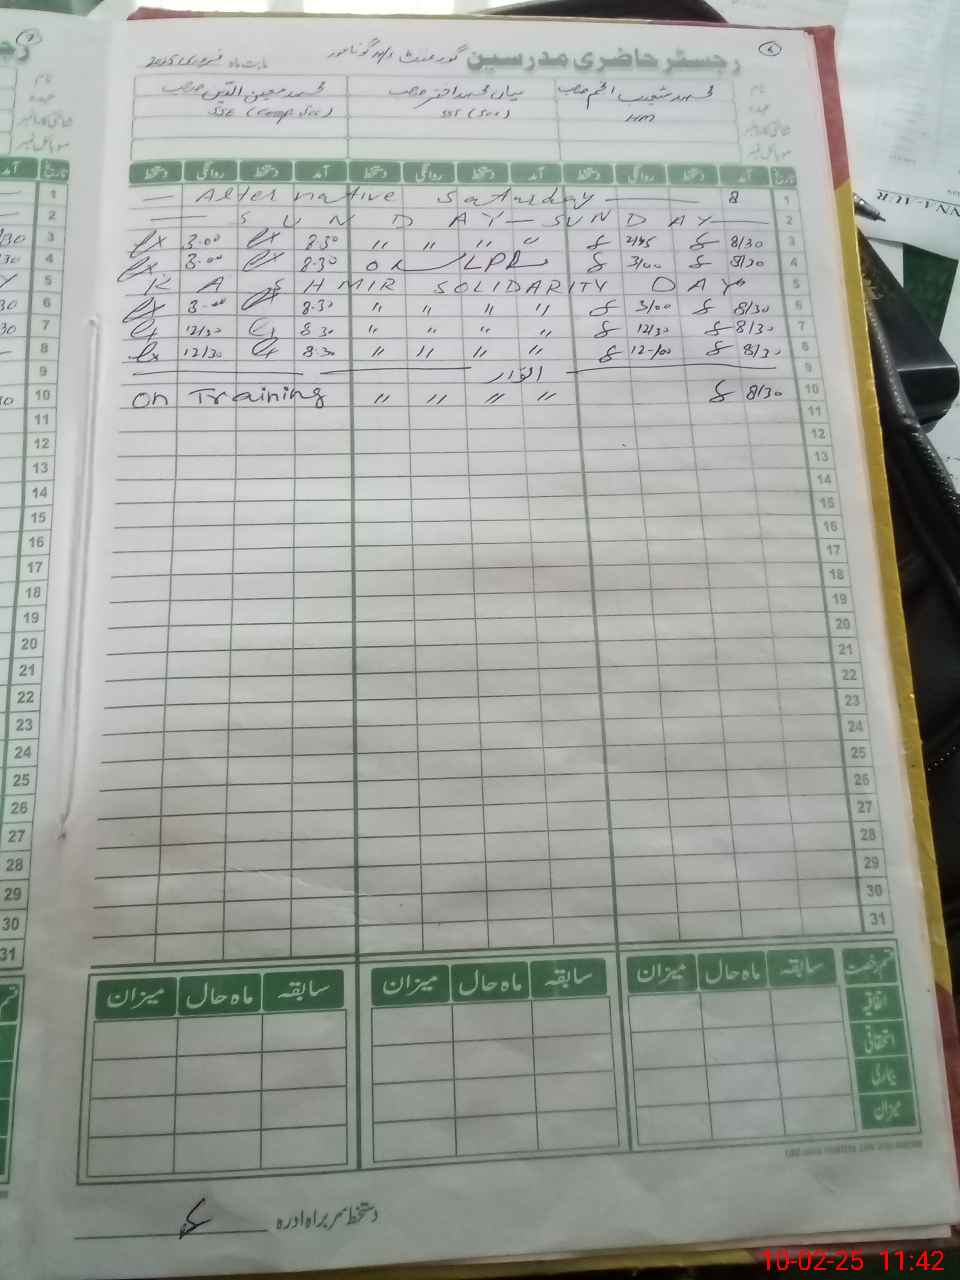 رجسٹر حاضری مدرسین گورنمنٹ
بابت ماہ فروری 2025
نام محمد شعیب انجم صاحب میاں محمد اختر صاحب محمد معین الدین صاحب
عہدہ HM SST (Sci) SSE (Comp Sci)
شناختی کارڈ نمبر
موبائل نمبر
تاریخ آمد دستخط روانگی دستخط آمد دستخط روانگی دستخط آمد دستخط روانگی دستخط
1 — Alternative Saturday — 8
2 — SUNDAY — SUNDAY —
3 8/30 2/45 " " " " 8:30 3:00
4 8/30 3/00 on LPR 8:30 3:00
5 KASHMIR SOLIDARITY DAY
6 8/30 3/00 " " " " 8:30 3:00
7 8/30 12/30 " " " " 8:30 12/30
8 8/30 12/00 " " " " 8:30 12/30
9 اتوار
10 8/30 " " " " on Training
11
12
13
14
15
16
17
18
19
20
21
22
23
24
25
26
27
28
29
30
31
قسم رخصت سابقہ ماہ حال میزان سابقہ ماہ حال میزان سابقہ ماہ حال میزان
اتفاقیہ
استحقاقی
بیماری
میزان
دستخط سربراہ ادارہ
10-02-25 11:42